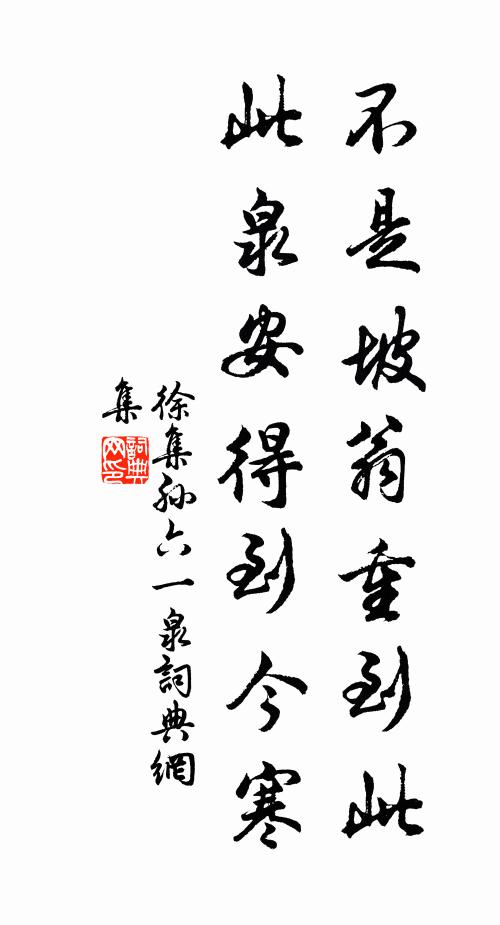 不是坡翁重到此
此泉安得到今寒
徐集孙六一泉詞典網
集
詞典网印